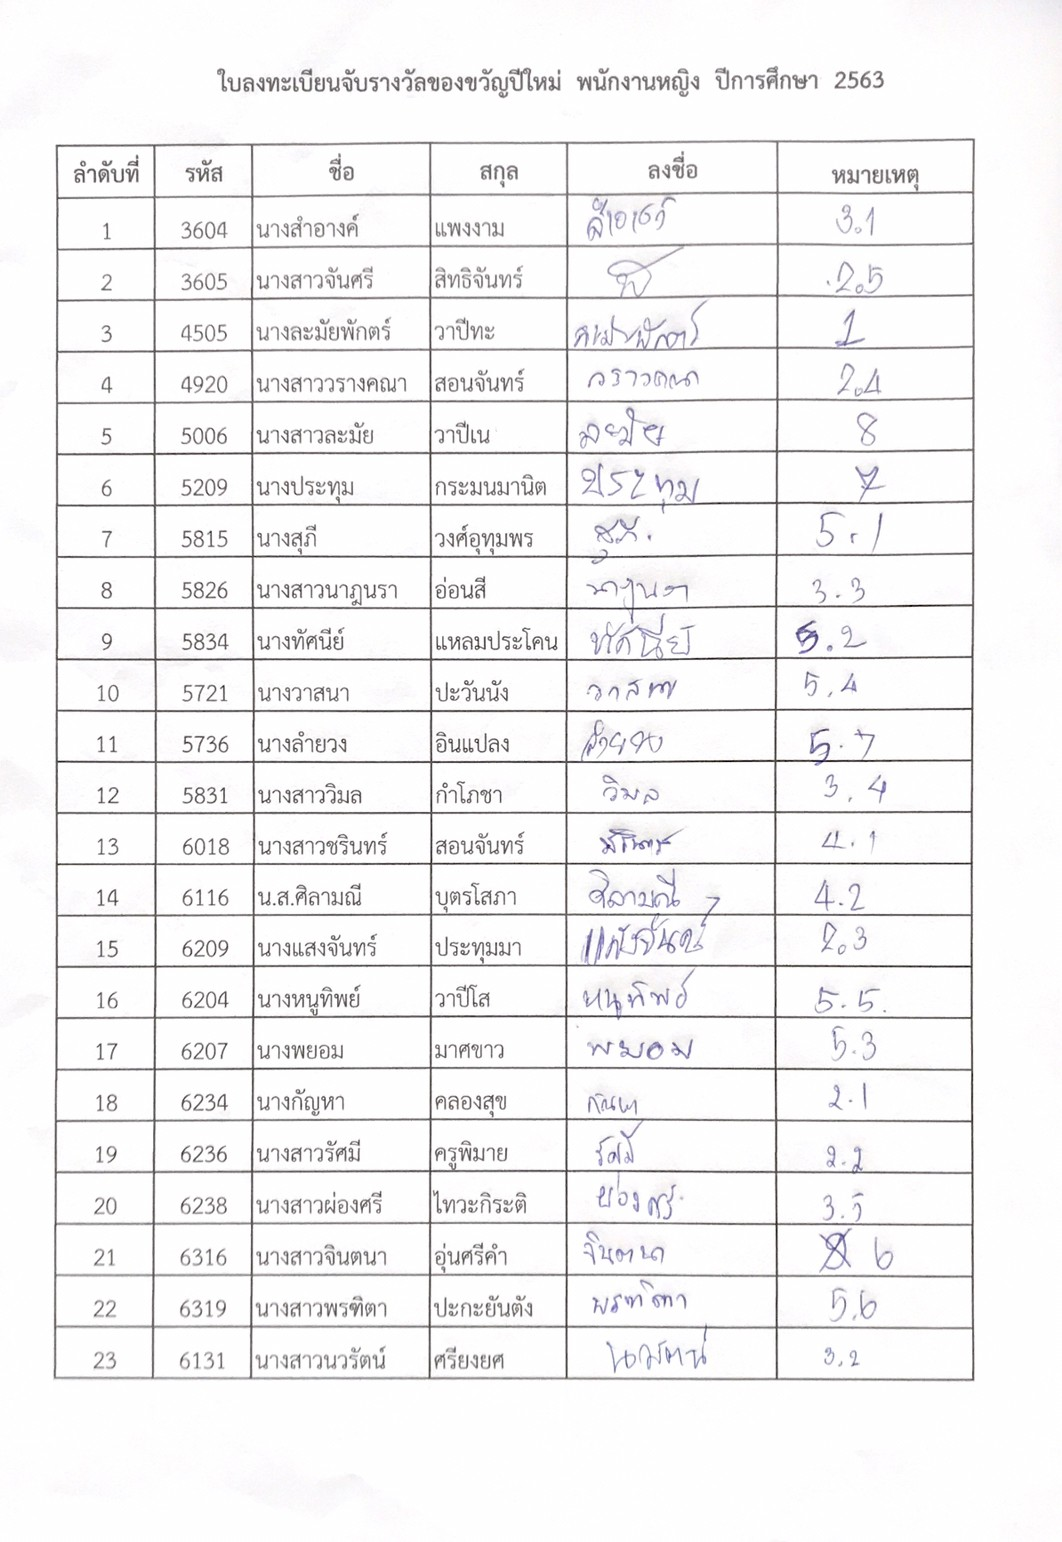 ใบลงทะเบียนจับรางวัลของขวัญปีใหม่ พนักงานหญิง ปีการศึกษา 2563
ลำดับที่ รหัส ชื่อ สกุล ลงชื่อ หมายเหตุ
1 3604 นางสำอางค์ แพงงาม 3.1
2 3605 นางสาวจันศรี สิทธิจันทร์ 2.5
3 4505 นางละมัยพักตร์ วาปีทะ ละมัยพักตร์ 1
4 4920 นางสาววรางคณา สอนจันทร์ วรางคณา 2.4
5 5006 นางสาวละมัย วาปีเน ละมัย 8
6 5209 นางประทุม กระมนมานิต ประทุม 7
7 5815 นางสุภี วงศ์อุทุมพร สุภี. 5.1
8 5826 นางสาวนาฎนรา อ่อนสี 3.3
9 5834 นางทัศนีย์ แหลมประโคน ทัศนีย์ 5.2
10 5721 นางวาสนา ปะวันนัง วาสนา 5.4
11 5736 นางลำยวง อินแปลง ลำยวง 5.7
12 5831 นางสาววิมล กำโภชา วิมล 3.4
13 6018 นางสาวชรินทร์ สอนจันทร์ ชรินทร์ 4.1
14 6116 น.ส.ศิลามณี บุตรโสภา ศิลามณี 4.2
15 6209 นางแสงจันทร์ ประทุมมา แสงจันทร์ 2.3
16 6204 นางหนูทิพย์ วาปีโส หนูทิพย์ 5.5.
17 6207 นางพยอม มาศขาว พยอม 5.3
18 6234 นางกัญหา คลองสุข กัณหา 2.1
19 6236 นางสาวรัศมี ครูพิมาย รัศมี 2.2
20 6238 นางสาวผ่องศรี ไทวะกิระติ ผ่องศรี 3.5
21 6316 นางสาวจินตนา อุ่นศรีคำ จินตนา 6
22 6319 นางสาวพรฑิตา ปะกะยันตัง พรฑิตา 5.6
23 6131 นางสาวนวรัตน์ ศรียงยศ นวรัตน์ 3.2